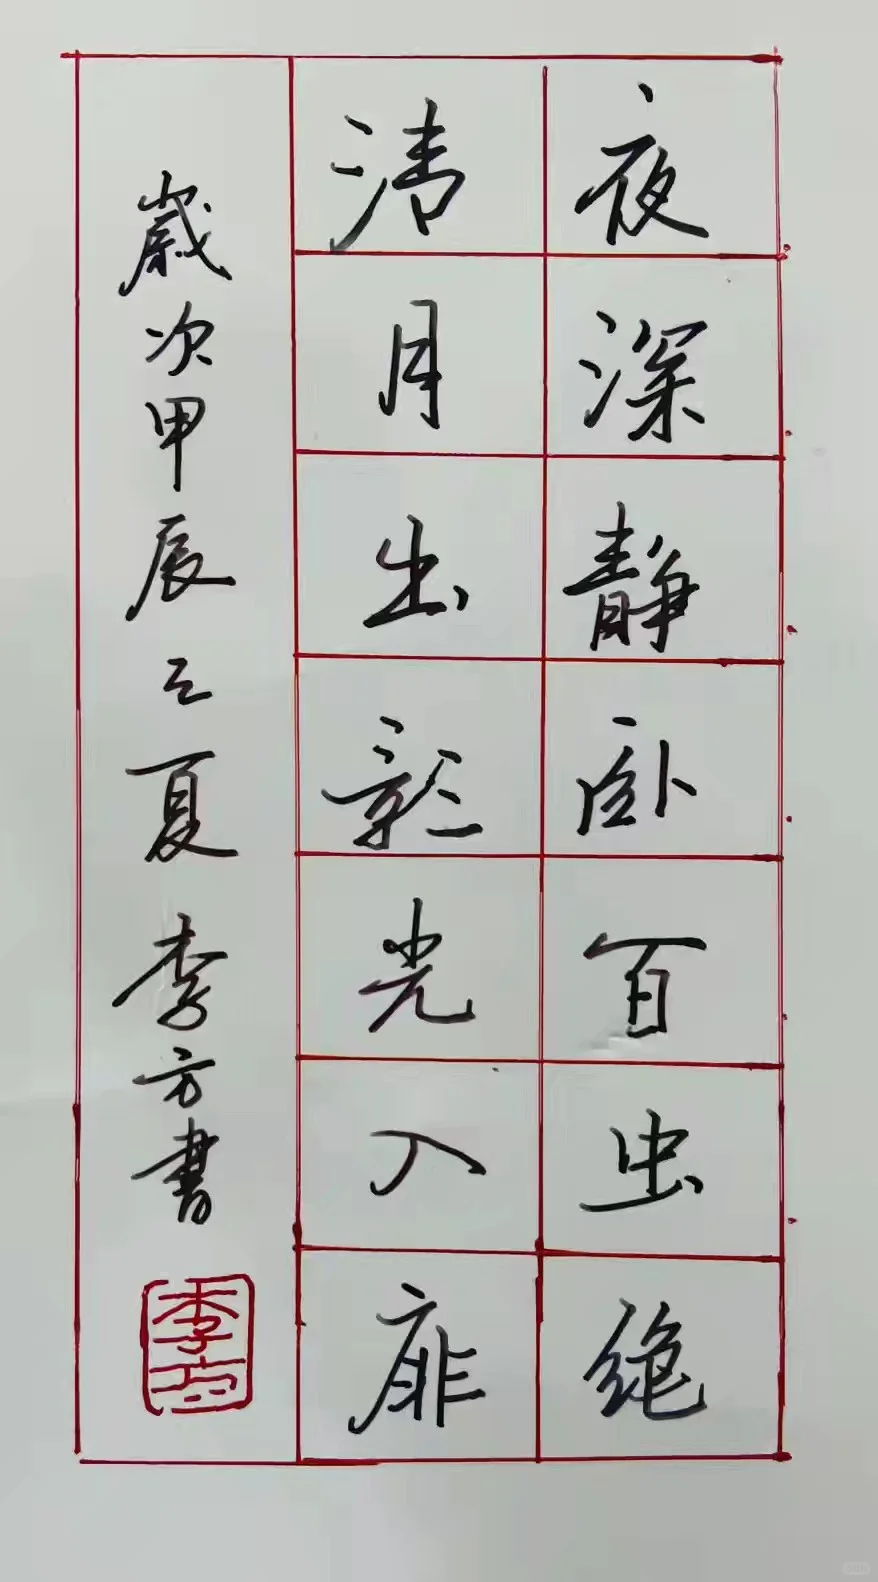 夜深静卧百虫绝
清月出光入扉
歲次甲辰之夏李方書
李方